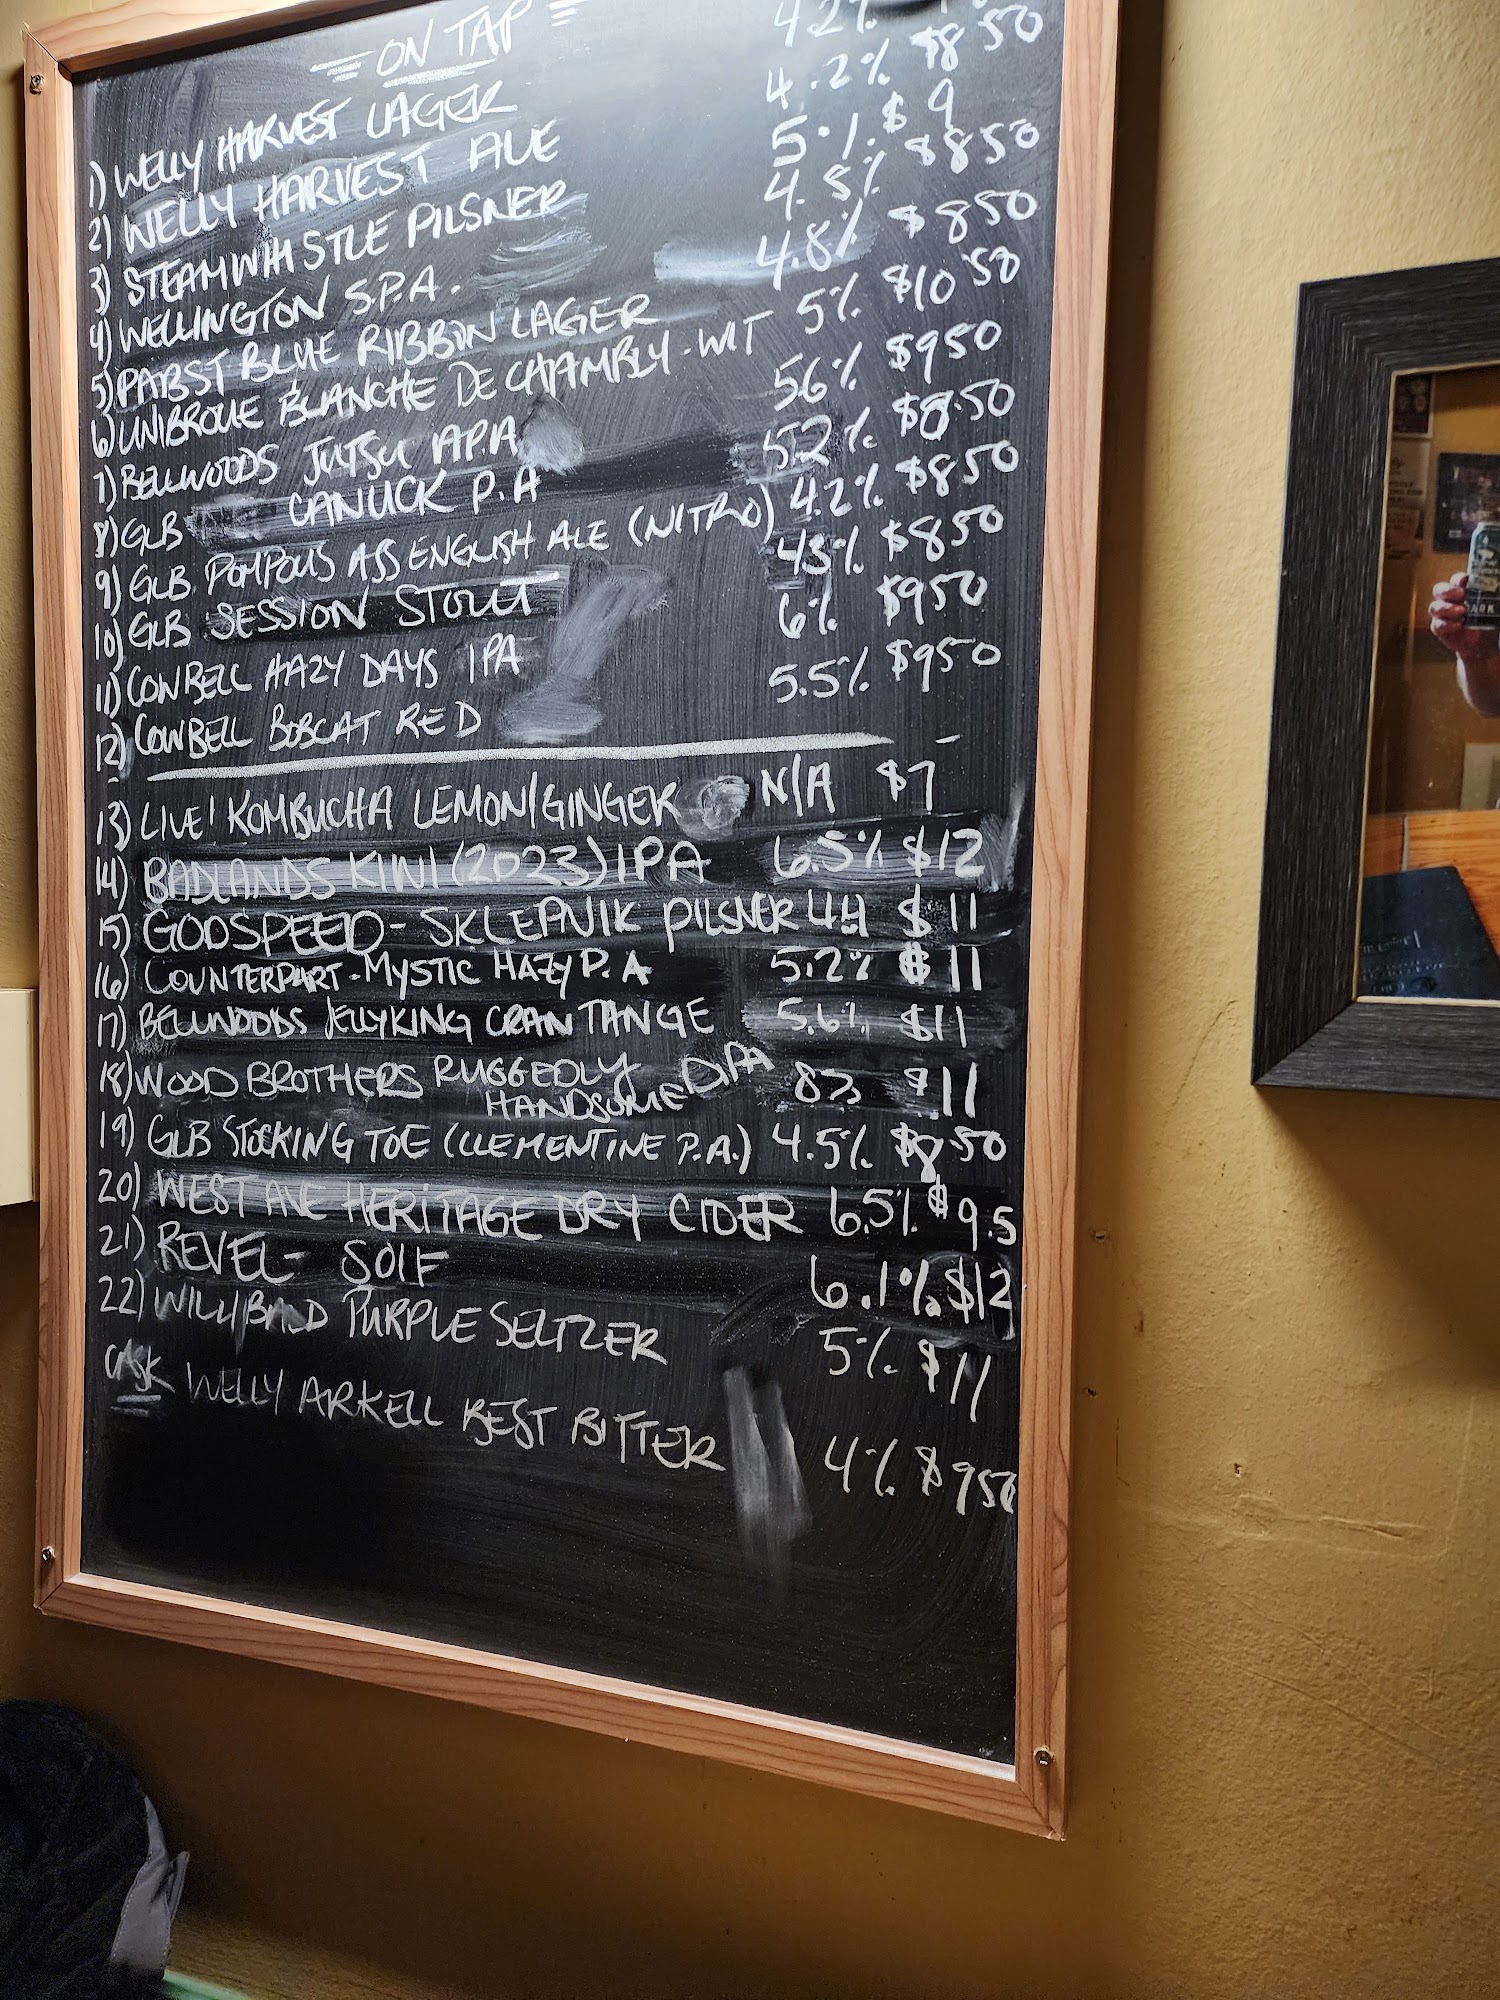 ON TAP
1) WELLY HARVEST LAGER 4.2%
2) WELLY HARVEST ALE 4.2% $8.50
3) STEAMWHISTLE PILSNER 5% $9
4) WELLINGTON S.P.A. 4.5% $8.50
5) PABST BLUE RIBBON LAGER 4.8% $8.50
6) UNIBROUE BLANCHE DE CHAMBLY-WIT 5% $10.50
7) BELLWOODS JUTSU A.P.A 5.6% $9.50
8) GLB CANUCK P.A 5.2% $8.50
9) GLB POMPOUS ASS ENGLISH ALE (NITRO) 4.2% $8.50
10) GLB SESSION STOUT 4.3% $8.50
11) COWBELL HAZY DAYS IPA 6% $9.50
12) COWBELL BOBCAT RED 5.5% $9.50
13) LIVE! KOMBUCHA LEMON/GINGER N/A $7
14) BADLANDS KIWI (2023) IPA 6.5% $12
15) GODSPEED - SKLEPNIK PILSNER 4.4 $11
16) COUNTERPART-MYSTIC HAZY P.A 5.2% $11
17) BELLWOODS JELLYKING CRAN TANGE 5.6% $11
18) WOOD BROTHERS RUGGEDLY HANDSOME DIPA 8% $11
19) GLB STOCKING TOE (CLEMENTINE P.A.) 4.5% $8.50
20) WEST AVE HERITAGE DRY CIDER 6.5% $9.5
21) REVEL - SOIF 6.1% $12
22) WILLIBALD PURPLE SELTZER 5% $11
CASK WELLY ARKELL BEST BITTER 4% $9.50